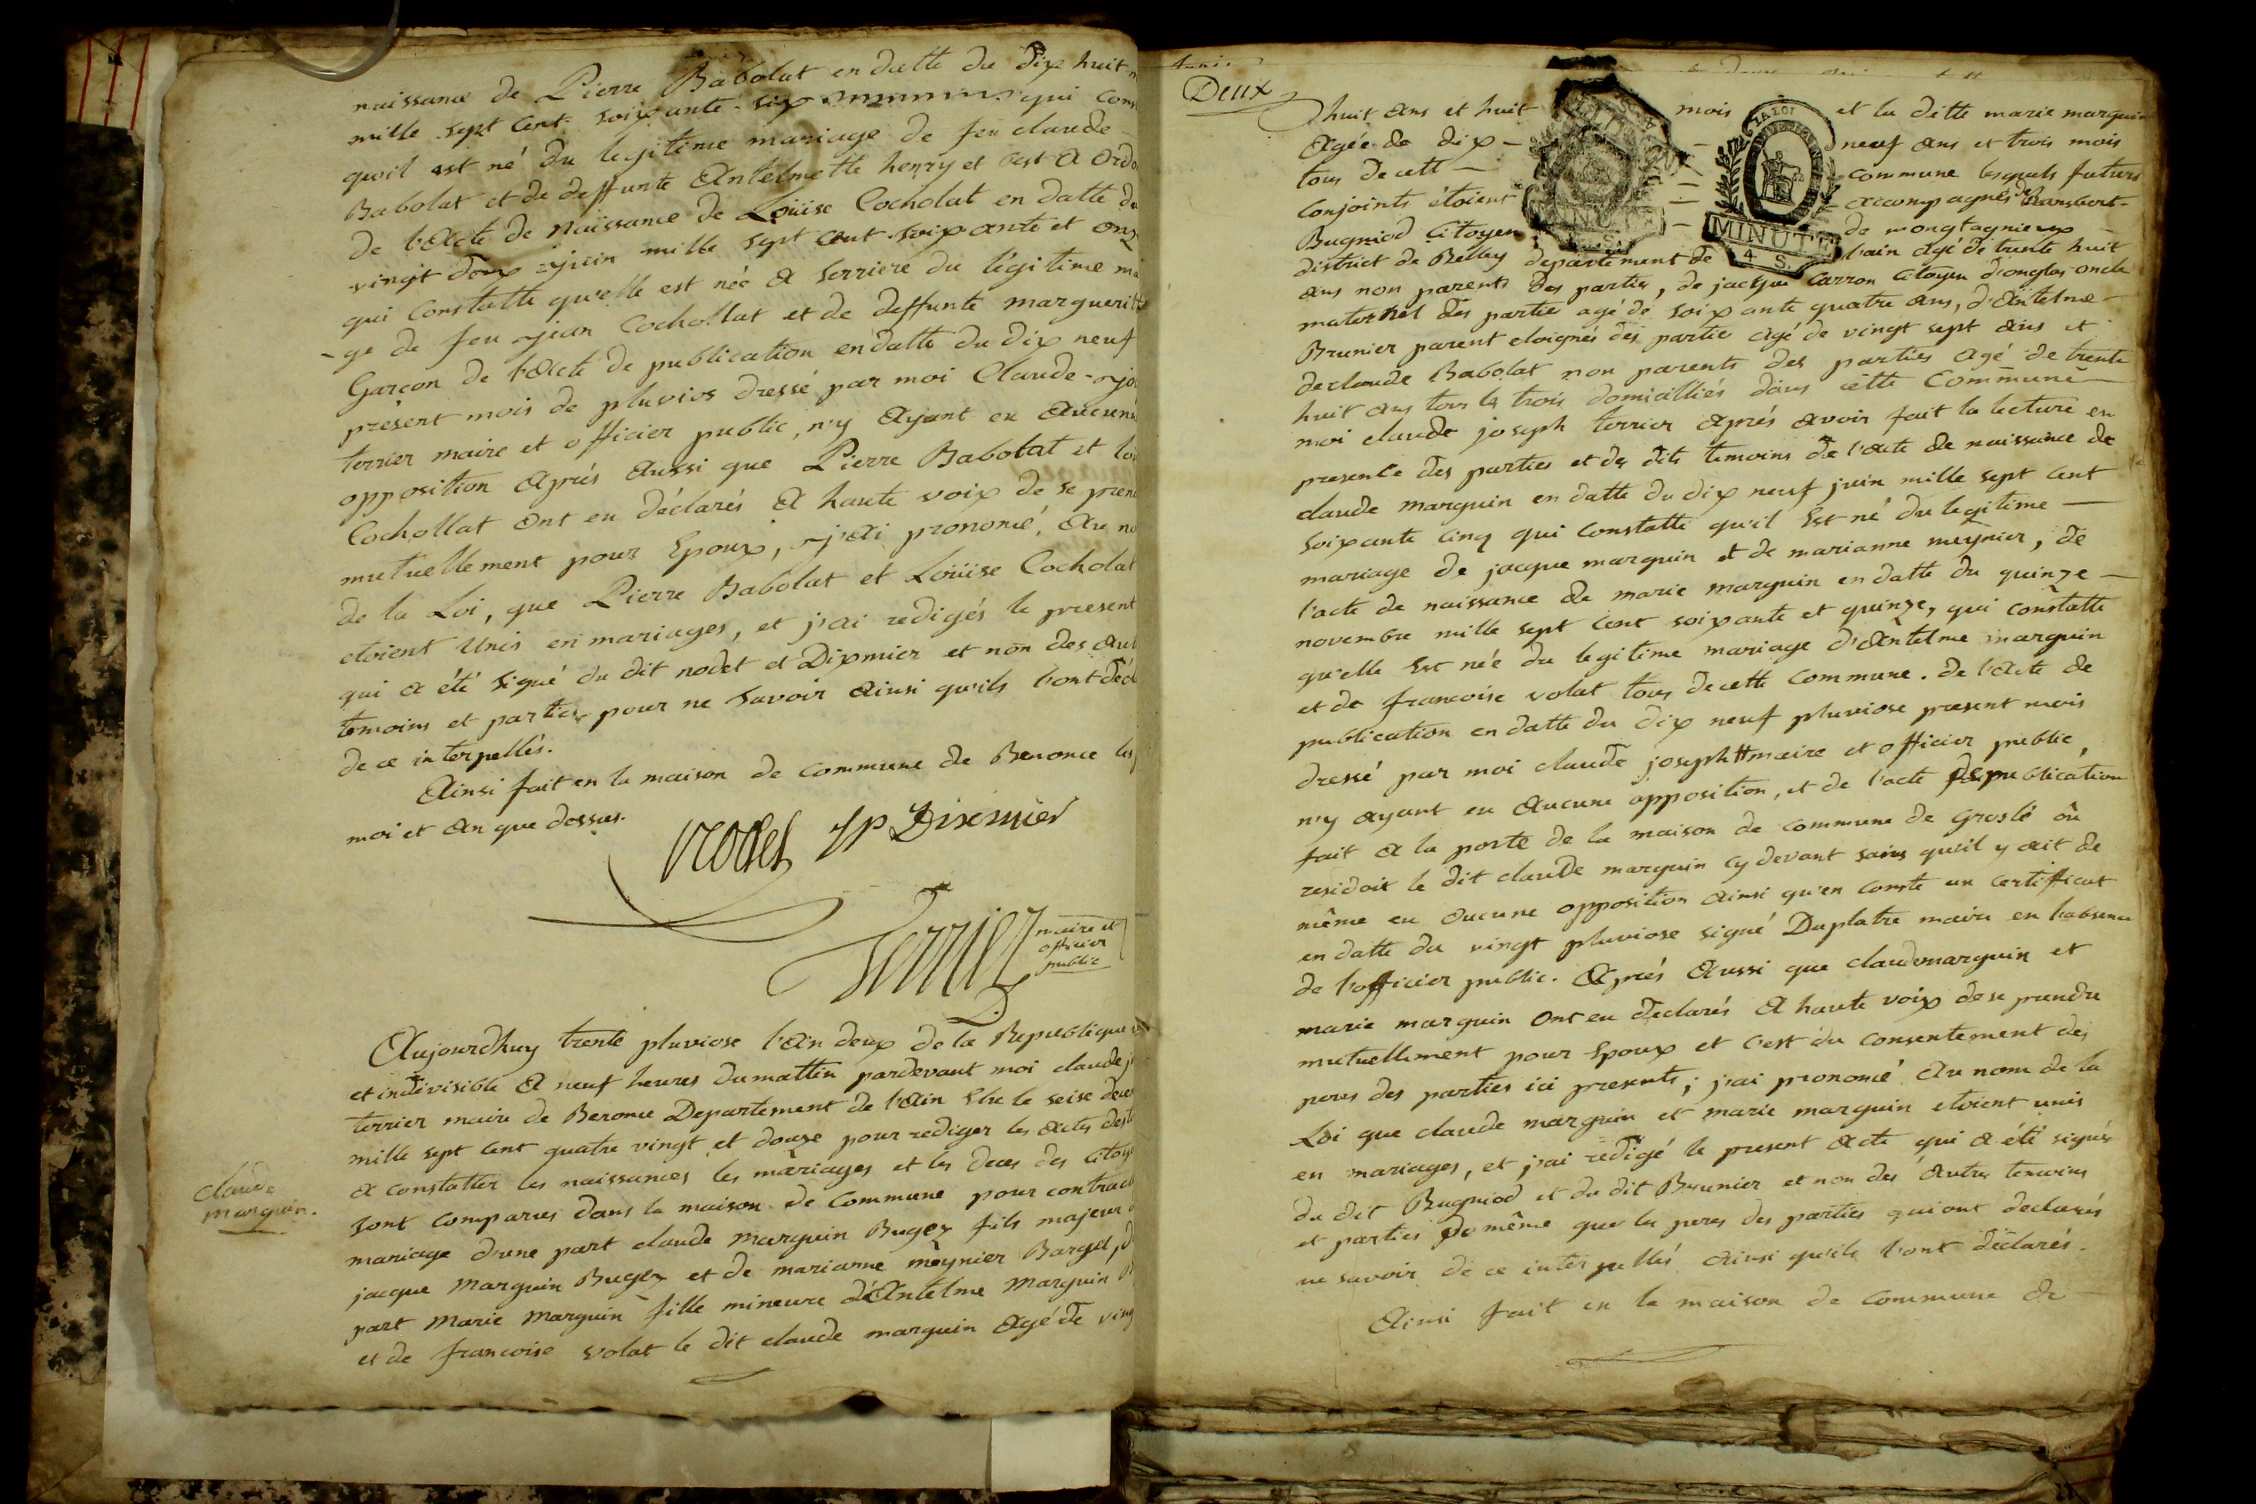 naissance de Pierre Babolat en datte du dix huit
mille sept cent soixante six qui
qu'oil est né du legitime mariage de feu claude
Babolat et de deffunte Antelmette henry et cest a
de l'acte de naissance de Loüise Cocholat en datte du
vingt deux juin mille sept cent soixante et
qui Constatte quelle est née a Serriere du légitime
-ge de feu jean Cochollat et de deffunte marguerite
Garçon de l'acte de publication en datte du dix neuf
présent mois de pluvios dressé par moi Claude
terrier maire et officier public, n'y ayant eu aucune
opposition après aussi que Pierre Babolat et
Cochollat ont eu déclarés a haute voix de se
mutuellement pour Epoux, j'ai prononcé, au
de la Loi, que Pierre Babolat et Loüise Cocholat
etoient unis en mariages, et j'ai redigés le present
qui a été signé du dit nodet et Dixmier et non des
temoins et parties pour ne savoir ainsi qu'ils l'ont
de ce interpellés.
Ainsi fait en la maison de commune de Benonce les
moi et an que dessus.
nodet JP Dixmier
Terrier maire et
officier
public
Aujourdhuy trente pluviose l'an deux de la Republique
et indivisible a neuf heures du mattin pardevant moi claude
terrier maire de Benonce Departement de l'ain Elu le seise
mille sept cent quatre vingt et douze pour rediger les actes
a constatter les naissances les mariages et les deces des
sont comparus dans la maison de commune pour
claude
marguin.
mariage d'une part claude marguin Buges fils majeur
jacque marguin Buges et de marianne meynier Barget,
part marie marguin fille mineure d'Antelme marguin
et de francoise volat le dit claude marguin agé de
Deux
huit ans et huit mois et la ditte marie marguin
agée de dix neuf ans et trois mois
tous de cette commune lesquels futurs
conjoints étoient accompagnés de
Bugniod Citoyen de montagnieux
MINUTE
4 S.
district de Belley departement de l'ain agé de trente huit
ans non parents des parties, de jacque Carron Citoyen oncle
maternel des partie agé de soixante quatre ans, d'antelme
Brunier parent eloignés des partie agé de vingt sept ans et
de claude Babolat non parents des parties agé de trente
huit ans tous les trois domiciliés dans cette Commune
moi claude joseph terrier après avoir fait la lecture en
presence des parties et des dits temoins de l'acte de naissance de
claude marguin en datte du dix neuf juin mille sept cent
soixante cinq qui constatte qu'il Est né du legitime
mariage de jacque marguin et de marianne meynier, de
l'acte de naissance de marie marguin en datte du quinze
novembre mille sept cent soixante et quinze, qui constatte
qu'elle Est née du legitime mariage d'Antelme marguin
et de francoise volat tous de cette Commune. de l'acte de
publication en datte du dix neuf pluviose present mois
dressé par moi claude joseph maire et officier public,
n'y ayant eu aucune opposition, et de l'acte de publication
fait a la porte de la maison de commune de Groslé où
residoit le dit claude marguin cy devant sans qu'il y ait de
même eu aucune opposition ainsi qu'en conste un certificat
en datte du vingt pluviose signé Duplatre maire en l'absence
de l'officier public. Après aussi que claude marguin et
marie marguin ont eu declarés a haute voix de se prendre
mutuellement pour Epoux et c'est du consentement des
peres des parties ici presents; j'ai prononcé au nom de la
Loi que claude marguin et marie marguin etoient unis
en mariages, et j'ai redigé le present acte qui a été signés
du dit Bugniod et du dit Brunier et non des autres temoins
et parties de même que les peres des parties qui ont declarés
ne savoir de ce interpellés ainsi qu'ils l'ont déclarés.
Ainsi fait en la maison de commune de